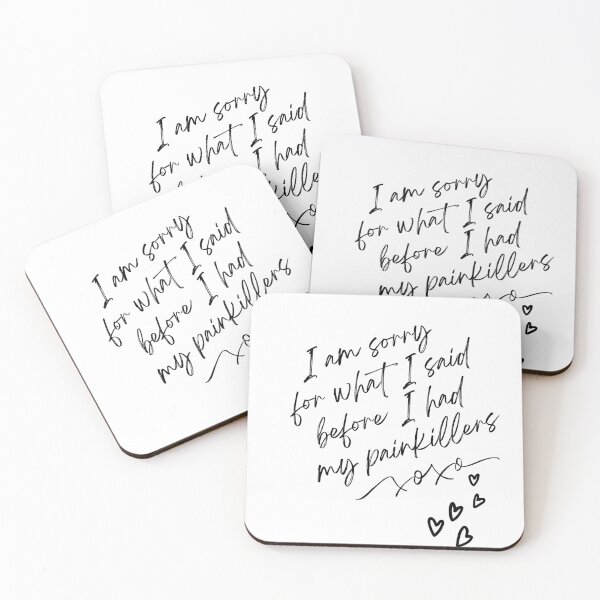 I am sorry
for what I said
I had
I am sorry
for what I said
before I had
my painkillers
xoxo
I am sorry
for what I said
before I had
my painkillers
I am sorry
for what I said
before I had
my painkillers
xoxo